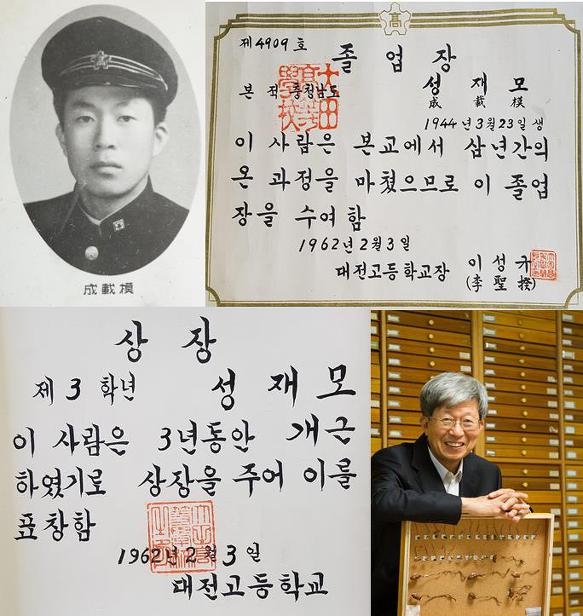 成載模
高
제4909호
졸업장
본적 충청남도
성재모
成載模
1944年3月23일 생
이 사람은 본교에서 삼년간의
온 과정을 마쳤으므로 이 졸업
장을 수여함
1962년 2월 3일
대전고등학교장 이성규
(李聖揆)
상장
제3학년 성재모
이 사람은 3년동안 개근
하였기로 상장을 주어 이를
표창함
1962년 2월 3일
대전고등학교